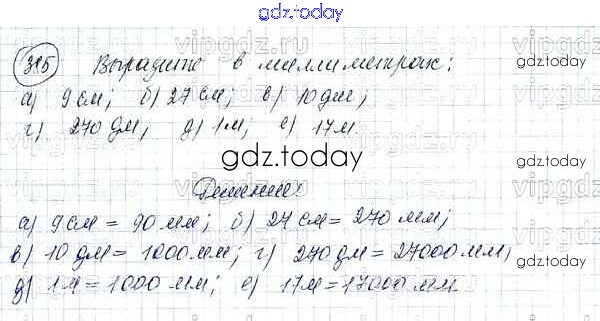 gdz.today
315 Выразите в миллиметрах:
а) 9 см; б) 27 см; в) 10 дм;
г) 270 дм; д) 1 м; е) 17 м.
gdz.today
gdz.today
Решение:
а) 9 см = 90 мм; б) 27 см = 270 мм;
в) 10 дм = 1000 мм; г) 270 дм = 27000 мм;
gdz.today
д) 1 м = 1000 мм; е) 17 м = 17000 мм.